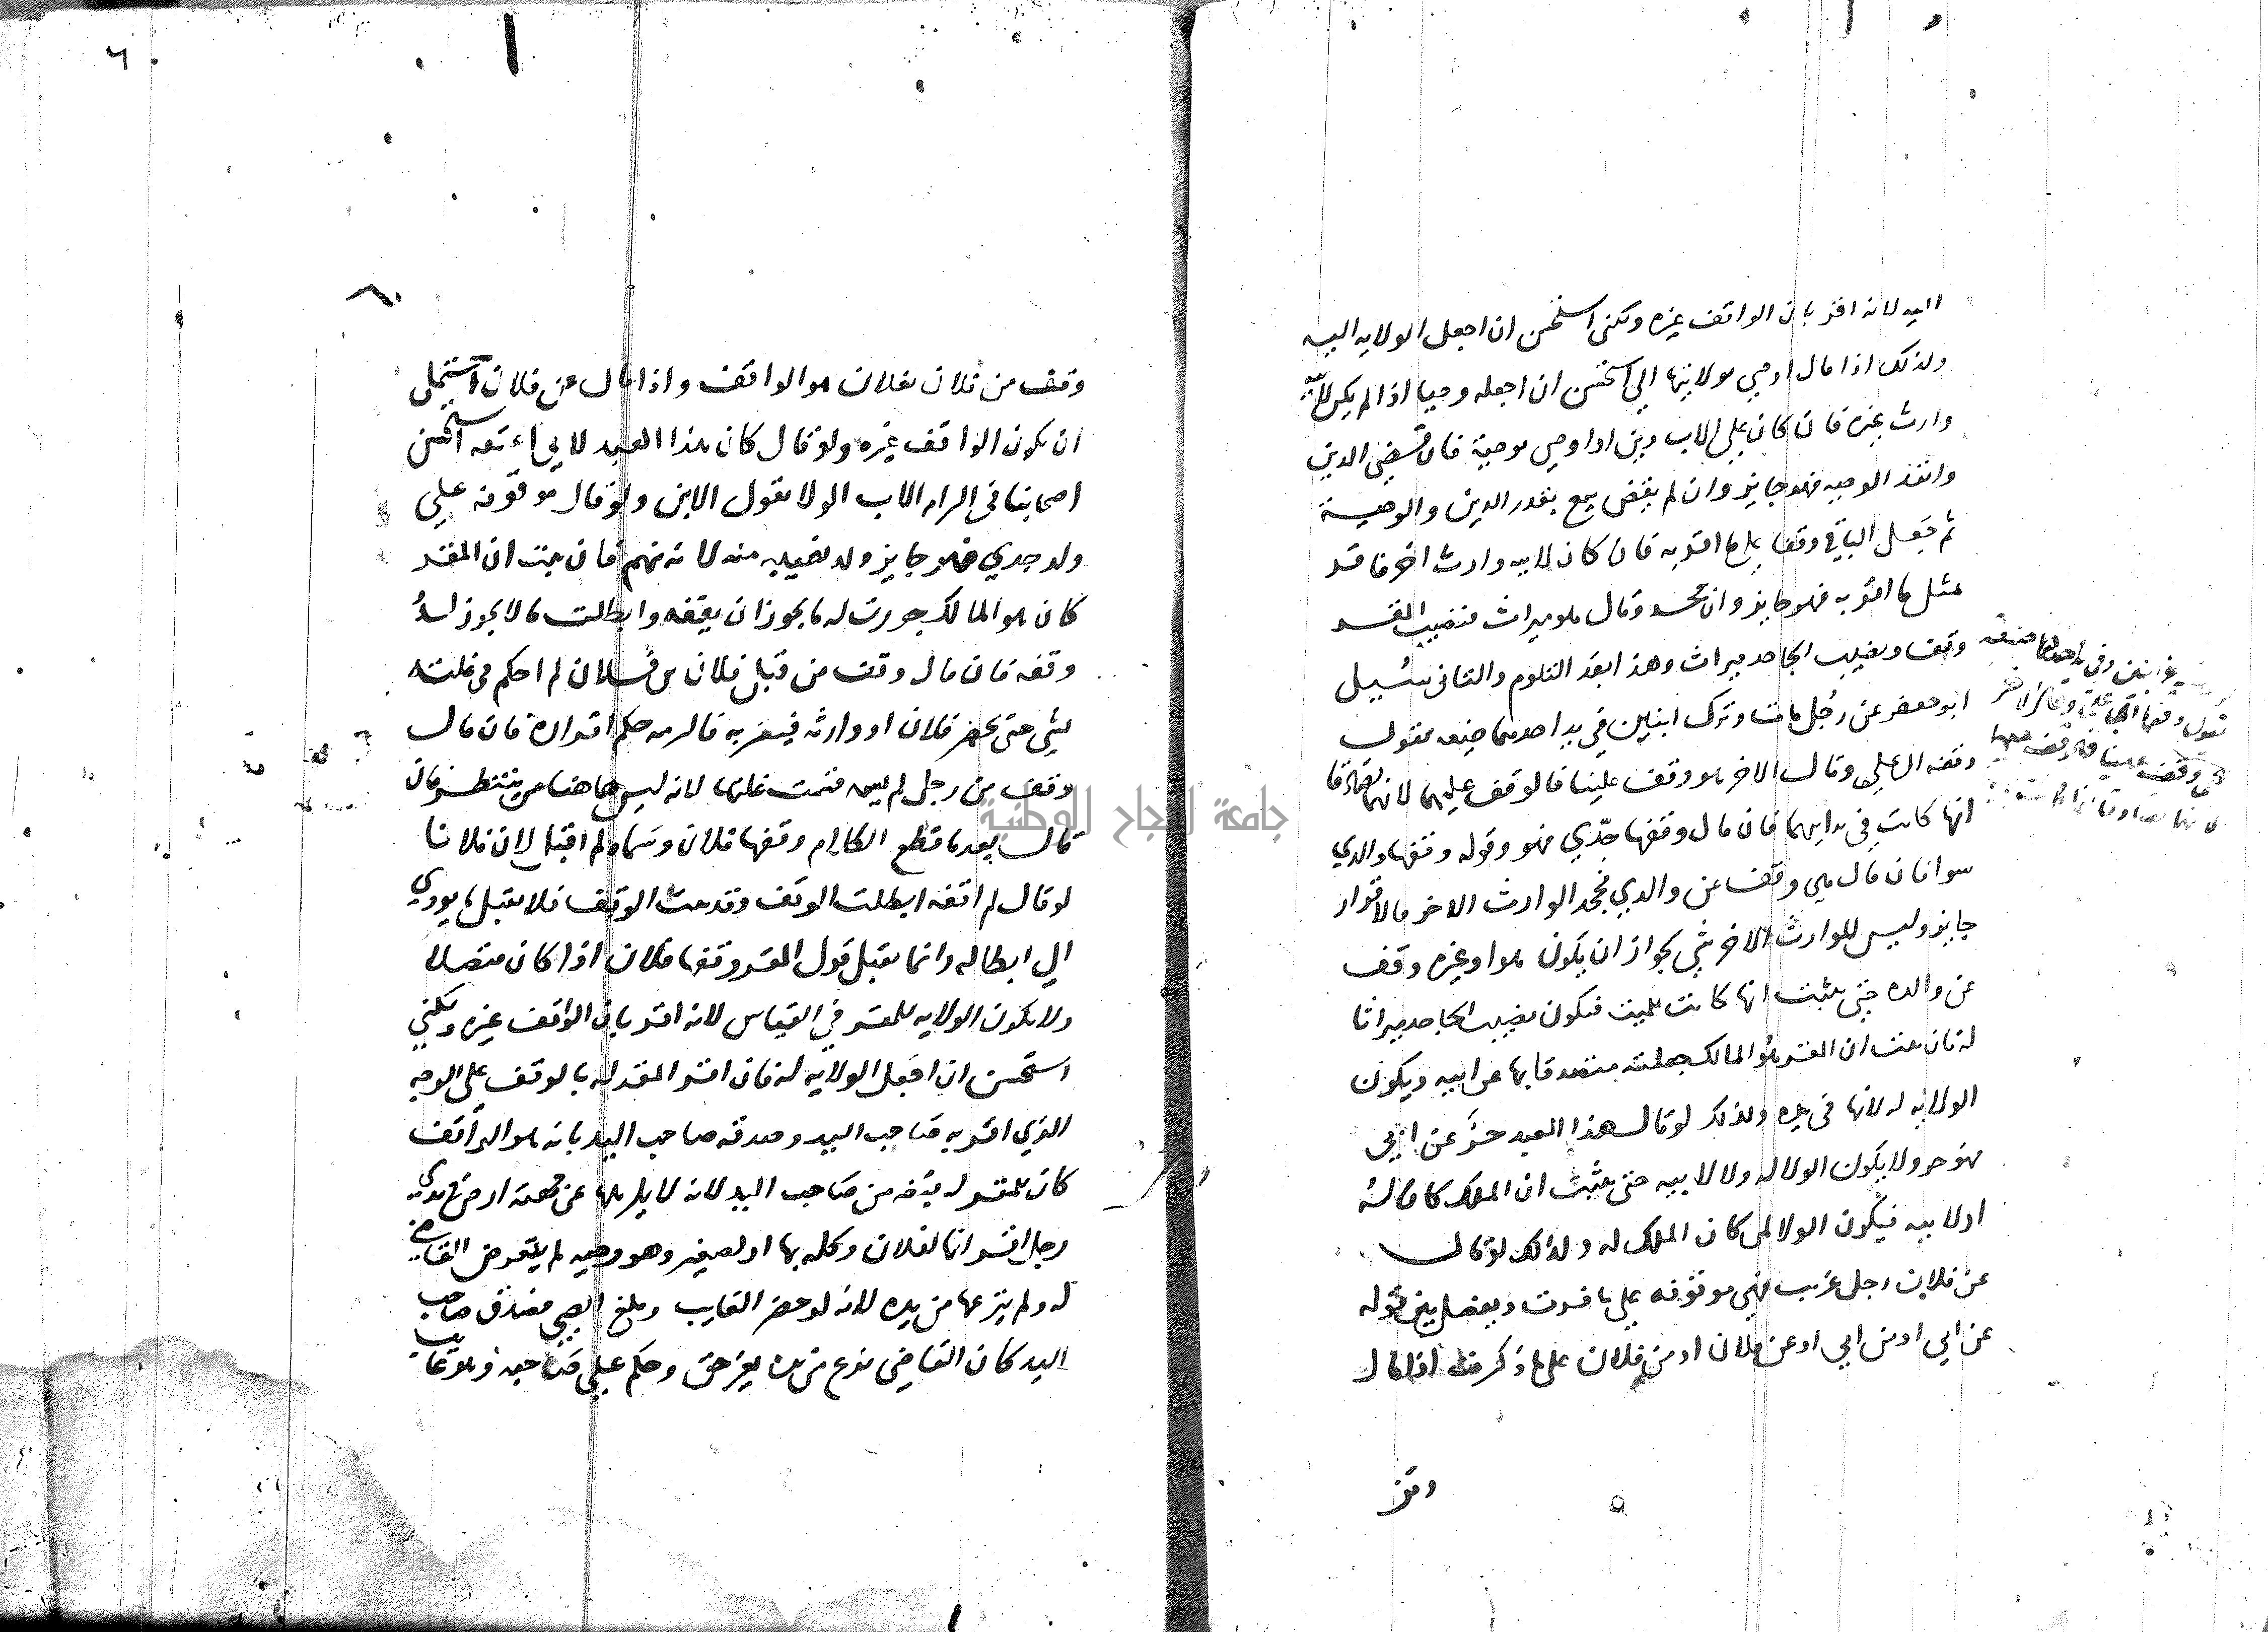 اليه لانه اقر بان الواقف غيره ولكني استحسن ان اجعل الولايه اليه
وكذلك اذا قال اوصي بولايتها الي استحسن ان اجعله وصيا اذا لم يكن لابيه
وارث غيره فان كان علي الاب دين او اوصي بوصية فان قضي الدين
وانفذ الوصيه فهو جايز وان لم يقض بيع بقدر الدين والوصية
ثم جعل الباقي وقفا علي ما اقر به فان كان لابيه وارث اخر فاقر
بمثل ما اقر به فهو جايز وان جحد وقال هو ميراث فنصيب المقر
وقف ونصيب الجاحد ميراث وهذا بعد التلوم والثاني سئيل
ابو جعفر عن رجل مات وترك ابنين في يد احدهما ضيعه يقول
وقفه ابي علي وقال الاخر هو وقف علينا قال وقف عليهما لانهما تصادقا
انها كانت في يد ابيهما فان قال وقفها جدي فهو وقوله وقفها والدي
سوا فان قال هي وقف عن والدي فجحد الوارث الاخر فالاقرار
جايز وليس للوارث الاخر شي لجواز ان يكون هو او غيره وقف
عن والده حتي يثبت انها كانت للميت فيكون نصيب الجاحد ميراثا
له فان ثبت ان المقر هو المالك جعلته متصدقا بها عن ابيه ويكون
الولايه له لانها في يده وكذلك لو قال هذا العبد حر عن ابي
فهو حر ولا يكون الولا له ولا لابيه حتي يثبت ان الملك كان له
او لابيه فيكون الولا لمن كان الملك له وكذلك لو قال
عن فلان رجل غريب فهي موقوفه علي ما فسرت ويفصل بين قوله
عن ابي او من ابي او عن فلان او من فلان علي ما ذكر منه اذا قال
وقف
وقف من فلان ففلان هو الواقف واذا قال عن فلان استجلي
ان يكون الواقف غيره ولو قال كان هذا العبد لابي اعتقه استحسن
اصحابنا في الزام الاب الولا بقول الابن ولو قال موقوفه علي
ولد جدي فهو جايز ولا نصيب منه لانه متهم فان ثبت ان المقر
كان هو المالك جوزت له ما يجوز ان يقفه وابطلت ما لا يجوز له
وقفه فان قال وقف من قبل فلان بن فلان لم احكم في غلته
بشي حتي يحضر فلان او وارثه فيقر به فالزمه حكم اقراره فان قال
وقف من رجل لم يسمه قسمت غلتها لانه ليس هاهنا من ينتظر فان
قال بعد ما قطع الكلام وقفها فلان وسماه لم اقبل لان فلانا
لو قال لم اقفه ابطلت الوقف وقد صح الوقف فلا يقبل ما يودي
الي ابطاله وانما يقبل قول المقر وقفها فلان اذا كان متصلا
ولا يكون الولايه للمقر في القياس لانه اقر بان الواقف غيره ولكني
استحسن ان اجعل الولايه له فان اقر المقر له بالوقف علي الوجه
الذي اقر به صاحب اليد وصدقه صاحب اليد بانه هو الواقف
كان للمقر له نزعه من صاحب اليد لانه لا يليها عن جهته ارض في يدي
رجل اقر انها لفلان وكله بها او لصغير وهو وصيه لم يتعرض القاضي
له ولم ينزعها من يده لانه لو حضر الغايب وبلغ الصبي فصدق صاحب
اليد كان القاضي نزع من يده بغير حق وحكم علي صاحبه وهو غايب
جامعة النجاح الوطنية